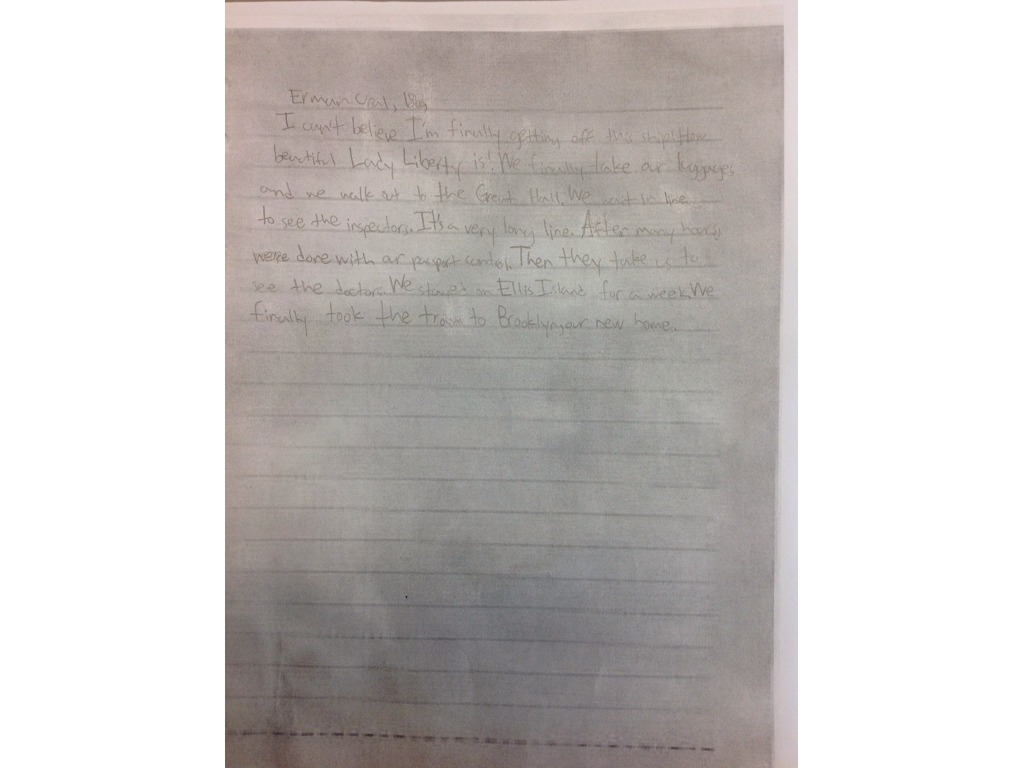 I can't believe I'm finally getting off this ship! How
beautiful Lady Liberty is! We finally take our luggages
and we walk out to the Great Hall. We wait in line
to see the inspectors. It's a very long line. After many hours,
we're done with our control. Then they take us to
see the doctors. We stayed on Ellis Island for a week. We
finally took the train to Brooklyn, our new home.